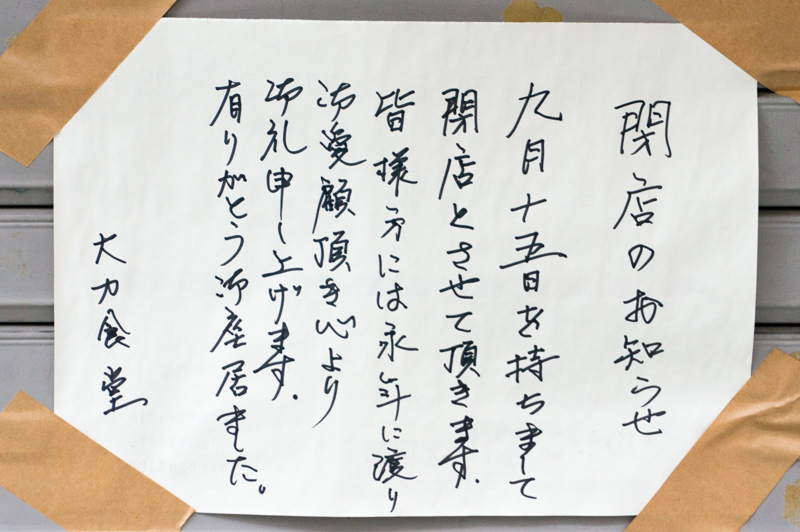 閉店のお知らせ
九月十五日を持ちまして
閉店とさせて頂きます.
皆様方には永年に渡り
御愛顧頂き心より
御礼申し上げます.
有りがとう御座居ました。
大力食堂